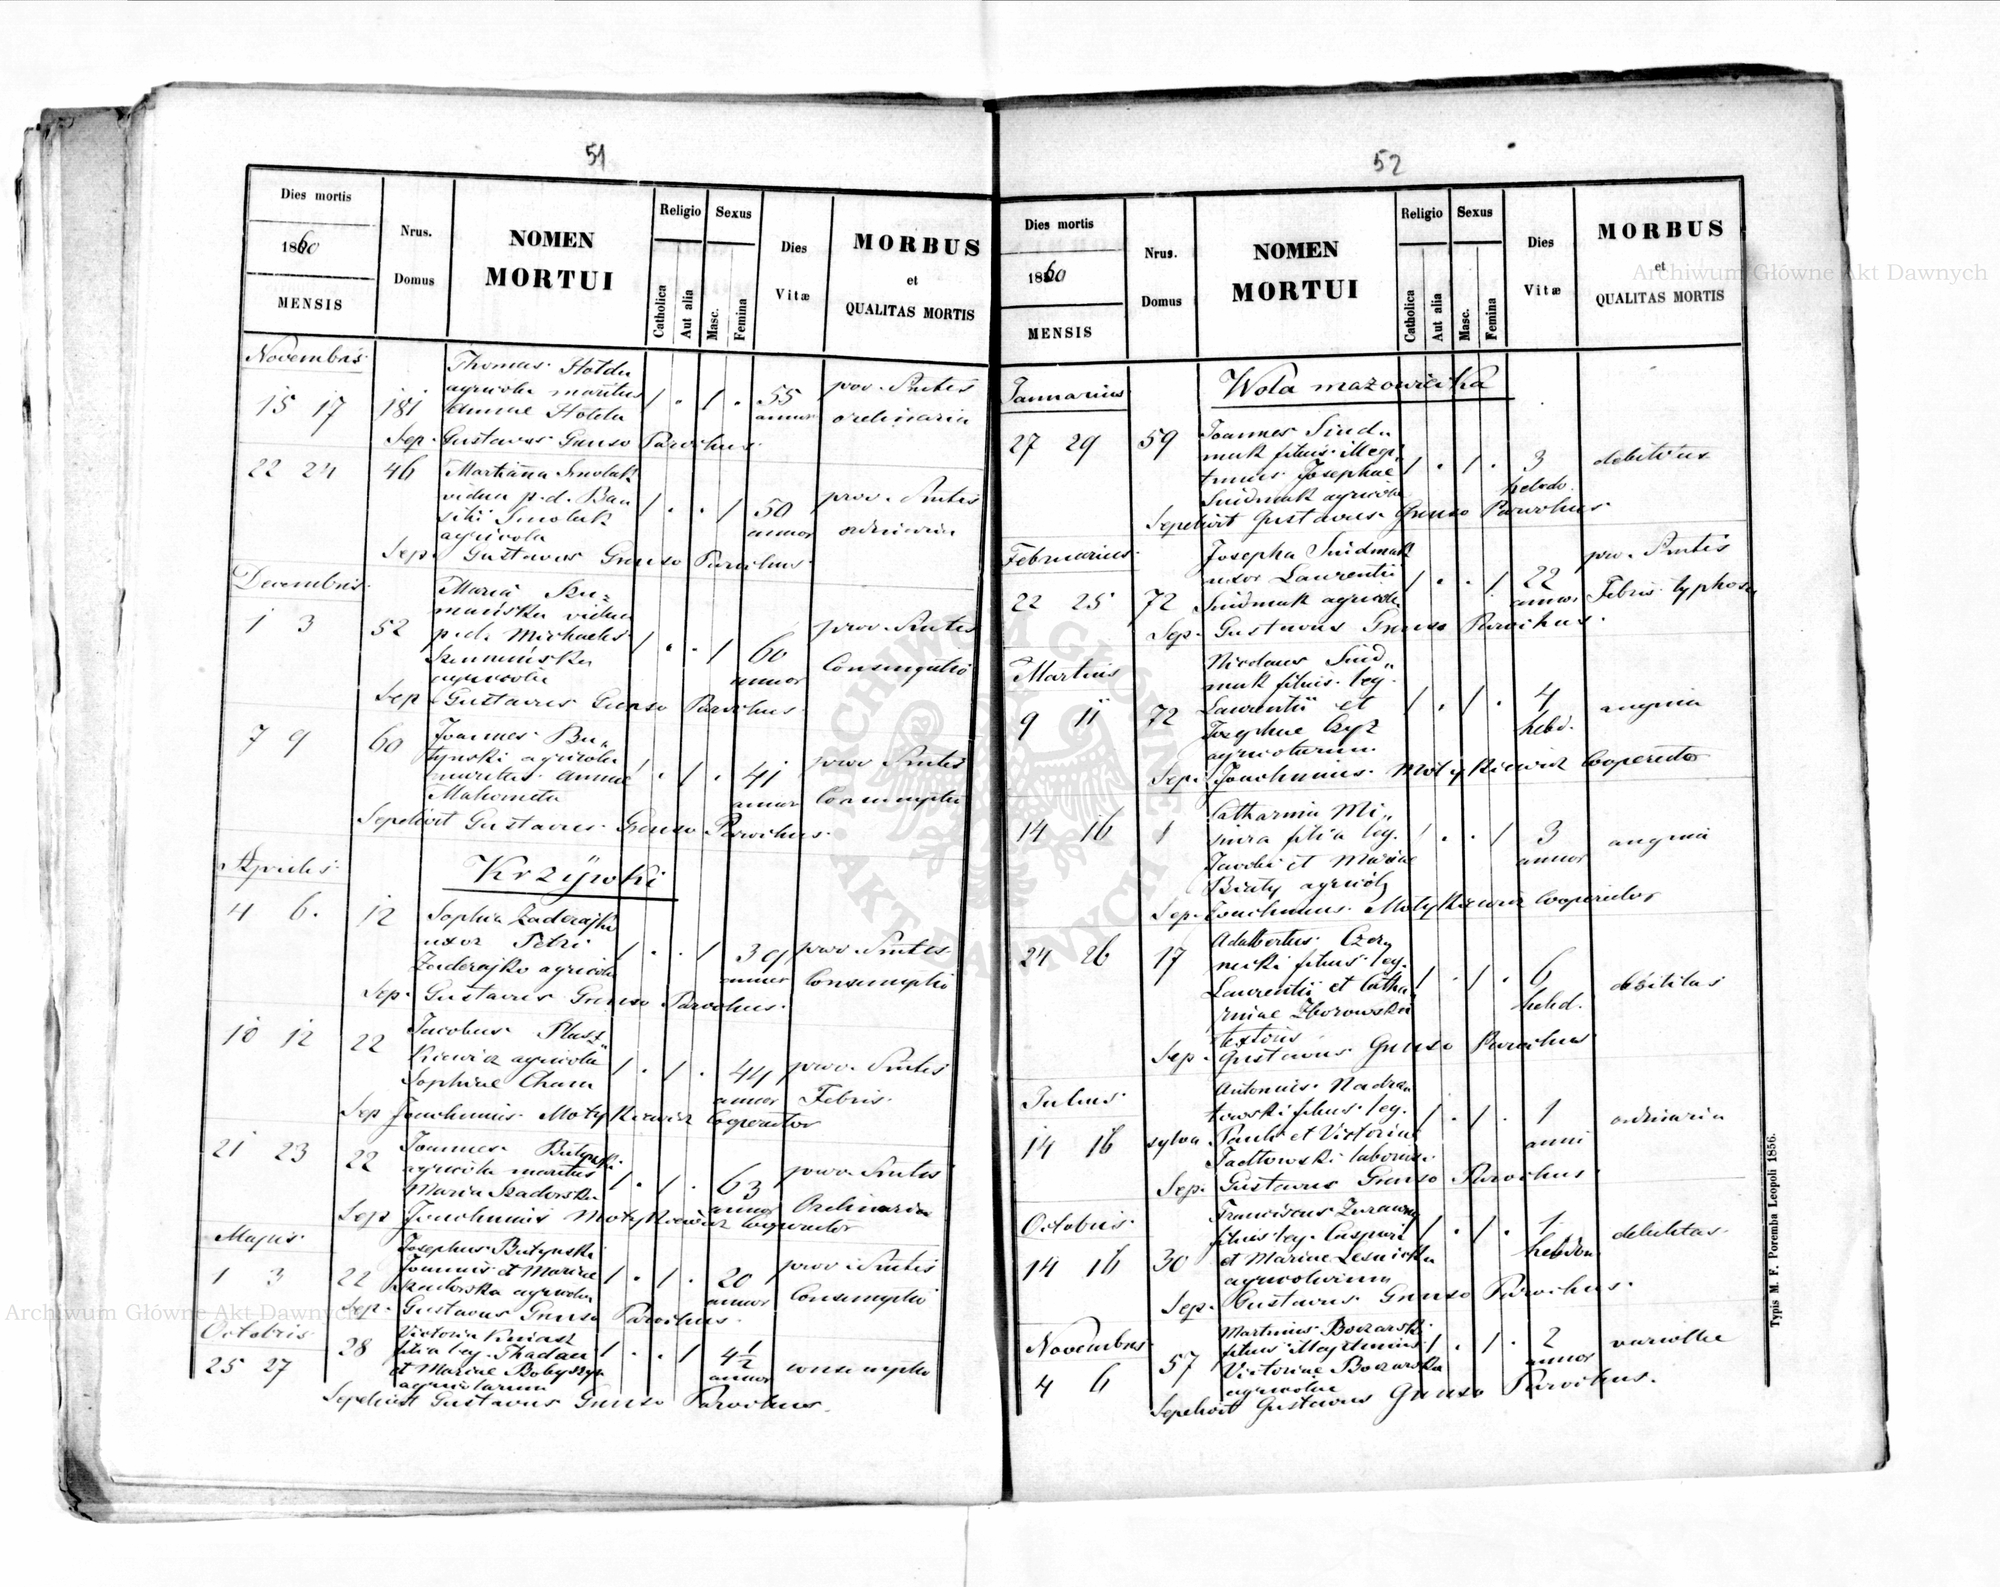 51
Dies mortis
1860
MENSIS
Nrus.
Domus
NOMEN
MORTUI
Religio
Catholica
Aut alia
Sexus
Masc.
Femina
Dies
Vitæ
MORBUS
et
QUALITAS MORTIS
Novembris
15 17 181 Thomas
agricola maritus
Annae 1 . 1 . 55 annor prov. Smtis ordinaria
Sep. Gustavus Gunso Parochus.
22 24 46 Marianna Smolak
vidua p. d. Ba
silii Smolak
agricola 1 . . 1 50 annor prov. Smtis ordinaria
Sep. Gustavus Gunso Parochus.
Decembris
1 3 52 Maria Szu-
mańska vidua
p. d. Michaelis
agricola 1 . . 1 60 annor prov. Smtis Consumptio
Sep Gustavus Gunso Parochus.
7 9 60 Joannes Bu„
tynski agricola
maritus Annae
Mahometa 1 . 1 . 41 annor prov Smtis Consumptio
Sepelivit Gustavus Gunso Parochus.
Aprilis
Krzÿwki
4 6. 12 Sophia Zaderajko
uxor Petri
Zaderajko agricola 1 . . 1 39 annor prov. Smtis Consumptio
Sep. Gustavus Gunso Parochus.
10 12 22 Jacobus Plasz„
kiewicz agricola
Sophiae Cham 1 . 1 . 44 annor prov. Smtis Febris.
Sep Joachimus Motykiewicz Cooperator
21 23 22 Joannes Butynski
agricola maritus
Maria Szadorska 1 . 1 . 63 annor prov. Smtis Ordinaria
Sep Joachimus Motykiewicz Cooperator
Majus
1 3 22 Josephus Butynski
Joannis et Mariae
Szadorska agricola 1 . 1 . 20 annor prov. Smtis Consumptio
Sep. Gustavus Gunso Parochus.
Octobris
25 27 28 Victoria Kniasz
filia leg. Thadaei
et Mariae
agricolarum 1 . . 1 4½ annor consumptio
Sepelivit Gustavus Gunso Parochus.
52
Dies mortis
1860
MENSIS
Nrus.
Domus
NOMEN
MORTUI
Religio
Catholica
Aut alia
Sexus
Masc.
Femina
Dies
Vitæ
MORBUS
et
QUALITAS MORTIS
Januarius
Wola mazowiecka
27 29 59 Joannes Smid„
mak filius illegi
timus Josephae
Smidmak agricola 1 . 1 . 3 hebdo. debilitas
Sepelivit Gustavus Gunso Parochus.
Februarius
22 25 72 Josepha Smidmak
uxor Laurentii
Smidmak agricola 1 . . 1 22 annor prov. Smtis Febris typhosa
Sep. Gustavus Gunso Parochus.
Martius
9 11 72 Nicolaus Smid„
mak filius leg.
Laurentii et
Josephae Czyz
agricolarum 1 . 1 . 4 hebd. angina
Sep. Joachimus Motykiewicz Cooperator
14 16 1 Catharina Mi„
filia leg.
Jacobi et Mariae
1 . . 1 3 annor angina
Sep. Joachimus Motykiewicz Cooperator
24 26 17 Adalbertus Czer
necki filius leg.
Laurentii et Catha„
rinae Zborowska
textoris 1 . 1 . 6 hebd. debilitas
Sep. Gustavus Gunso Parochus
Julius
14 16 sylva Antonius
filius leg.
Pauli et Victoria
1 . 1 . 1 anni ordinaria
Sep. Gustavus Gunso Parochus
Octobris
14 16 30 Franciscus Zurawny
filius leg. Caspari
et Mariae Lesnicka
agricolarum 1 . 1 . 1 hebdom debilitas.
Sep. Gustavus Gunso Parochus.
Novembris
4 6 57 Martinus Boczarski
filius illegitimus
Victoriae Boczarska
agricolae 1 . 1 . 2 annor variolae
Sepelivit Gustavus Gunso Parochus.
Typis M. F. Poremba Leopoli 1856.
Archiwum Główne Akt Dawnych
Archiwum Główne Akt Dawnych
ARCHIWUM GŁÓWNE AKT DAWNYCH